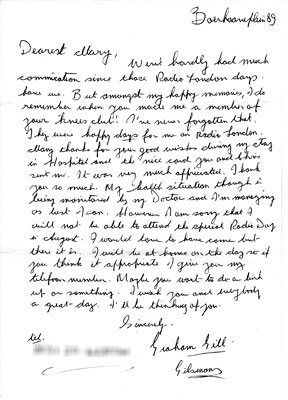 Boerhaaveplein 89
Dearest Mary,
We've hardly had much
commication since those Radio London days
have we. But amongst my happy memories, I do
remember when you made me a member of
your Knees club! I've never forgotten that.
They were happy days for me on Radio London.
Mary thanks for your good wishes during my stay
in Hospital and the nice card you and Chris
sent me. It was very much appreciated. I thank
you so much. My health situation though is
being monitored by my Doctor and I'm managing
as best I can. However I am sorry that I
will not be able to attend the special Radio Day
in August. I would love to have come but
there it is. I will be at home on the day so if
you think it appropriate I give you my
telefoon number. Maybe you want to do a link
up or something. I wish you and everybody
a great day. I'll be thinking of you.
Sincerely..
Graham Gill